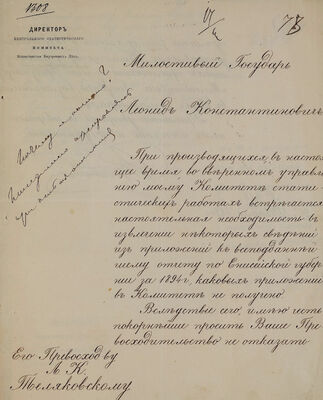 1808
78
ДИРЕКТОРЪ
ЦЕНТРАЛЬНАГО СТАТИСТИЧЕСКАГО
КОМИТЕТА
Министерства Внутреннихъ Дѣлъ.
Милостивый Государь
Леонидъ Константиновичъ
При производящихся, въ настоя
щее время, во ввѣренномъ управле
нію моему Комитетѣ стати
стическихъ работахъ встрѣчается
настоятельная необходимость въ
извлеченіи нѣкоторыхъ свѣдѣній
изъ приложеній къ всеподданнѣй
шему отчету по Енисейской губер
ніи за 1894 г., каковыхъ приложеній
въ Комитетѣ не получено
Вслѣдствіе сего, имѣю честь
покорнѣйше просить Ваше Пре
восходительство не отказать
Его Превосход. ву
Л. К.
Теляковскому